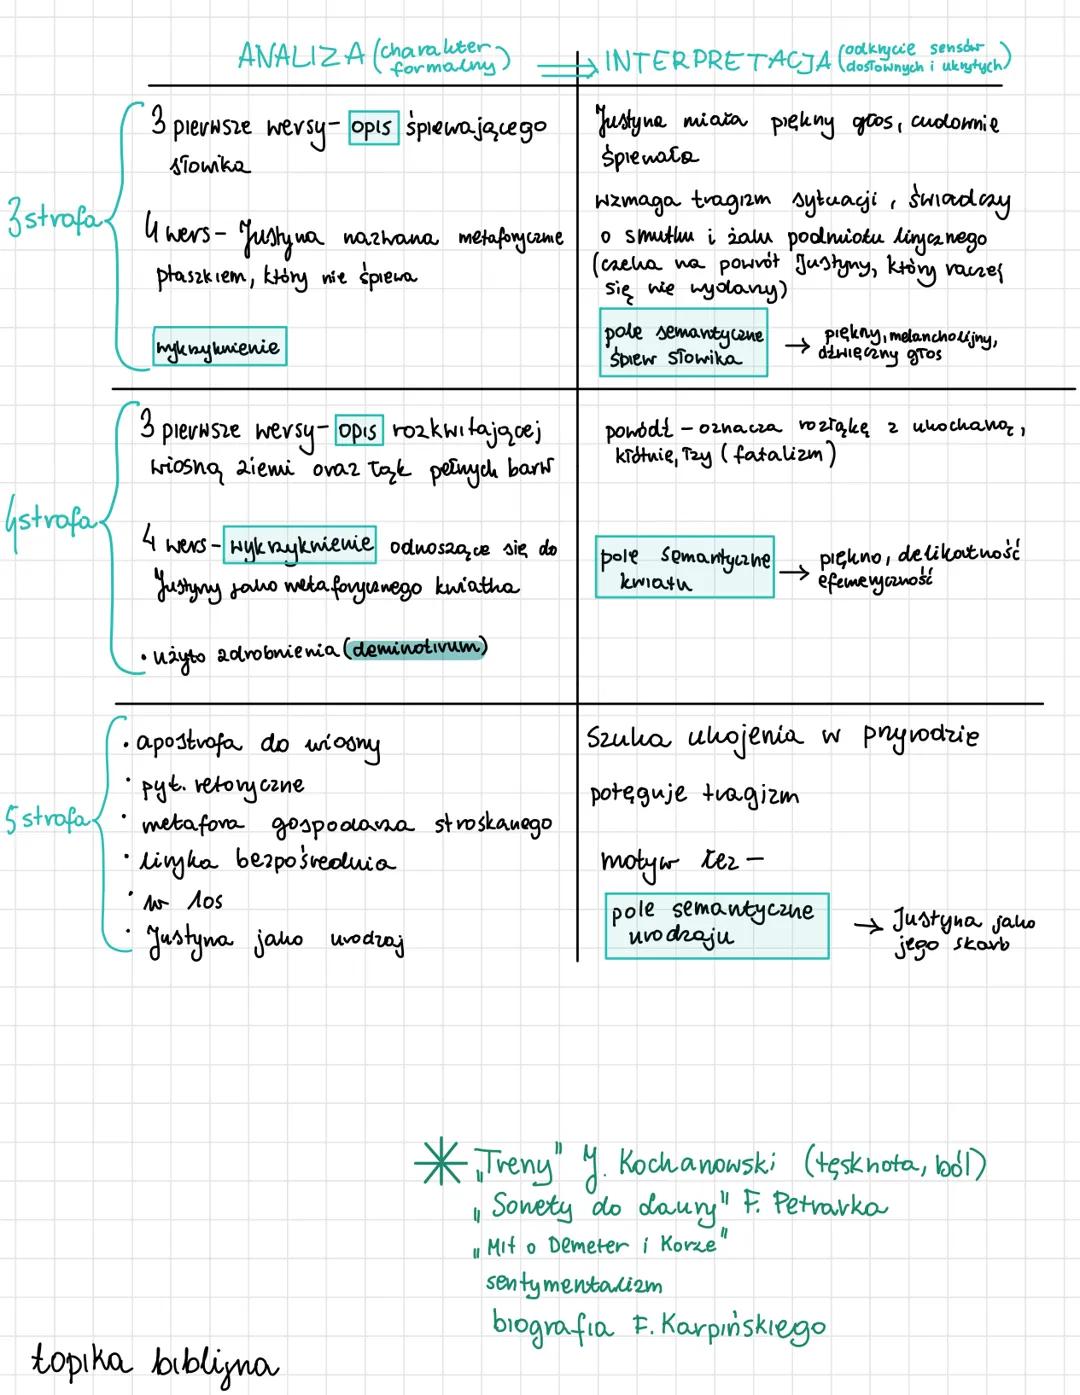 ANALIZA (charakter formalny) ⟹ INTERPRETACJA (odkrycie sensów dosłownych i ukrytych)
3 strofa
3 pierwsze wersy- opis śpiewającego
słowika
4 wers- Justyna nazwana metaforycznie
ptaszkiem, który nie śpiewa
wykrzyknienie
Justyna miała piękny głos, cudownie
śpiewała
wzmaga tragizm sytuacji, świadczy
o smutku i żalu podmiotu lirycznego
(czeka na powrót Justyny, który raczej
się nie wydarzy)
pole semantyczne
śpiew słowika
→ piękny, melancholijny,
dźwięczny głos
4 strofa
3 pierwsze wersy- opis rozkwitającej
wiosną ziemi oraz łąk pełnych barw
4 wers- wykrzyknienie odnoszące się do
Justyny jako metaforycznego kwiatka
• użyto zdrobnienia (deminotivum)
powódź - oznacza rozłąkę z ukochaną,
kłótnie, łzy (fatalizm)
pole semantyczne
kwiatu
→ piękno, delikatność
efemeryczność
5 strofa
• apostrofa do wiosny
• pyt. retoryczne
• metafora gospodarza stroskanego
• liryka bezpośrednia
• w los
• Justyna jako urodzaj
Szuka ukojenia w przyrodzie
potęguje tragizm
motyw łez -
pole semantyczne
urodzaju
→ Justyna jako
jego skarb
„Treny" J. Kochanowski (tęsknota, ból)
„Sonety do Laury" F. Petrarka
„Mit o Demeter i Korze"
sentymentalizm
biografia F. Karpińskiego
topika biblijna